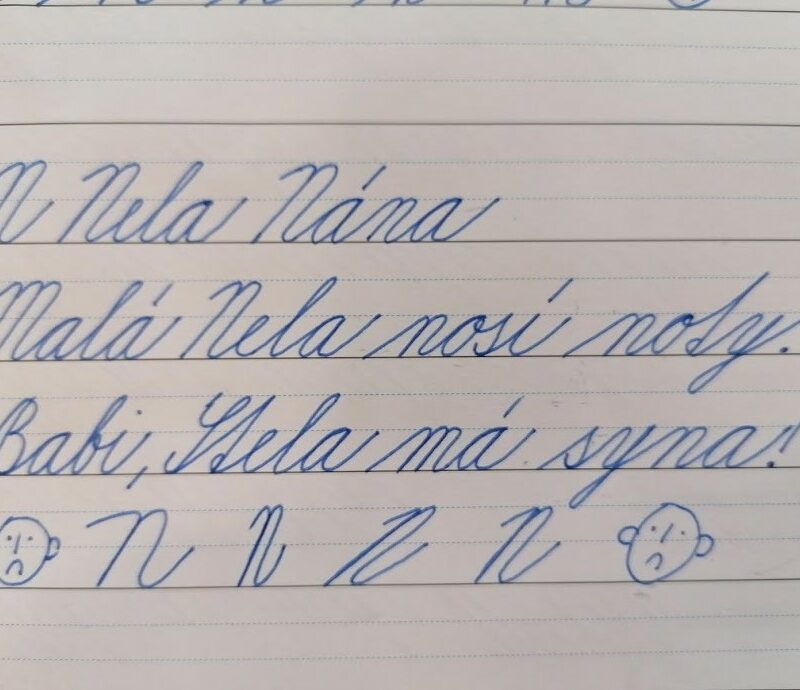 N Nela Nána
Malá Nela nosí noty.
Babi, Stela má syna!
N N N N